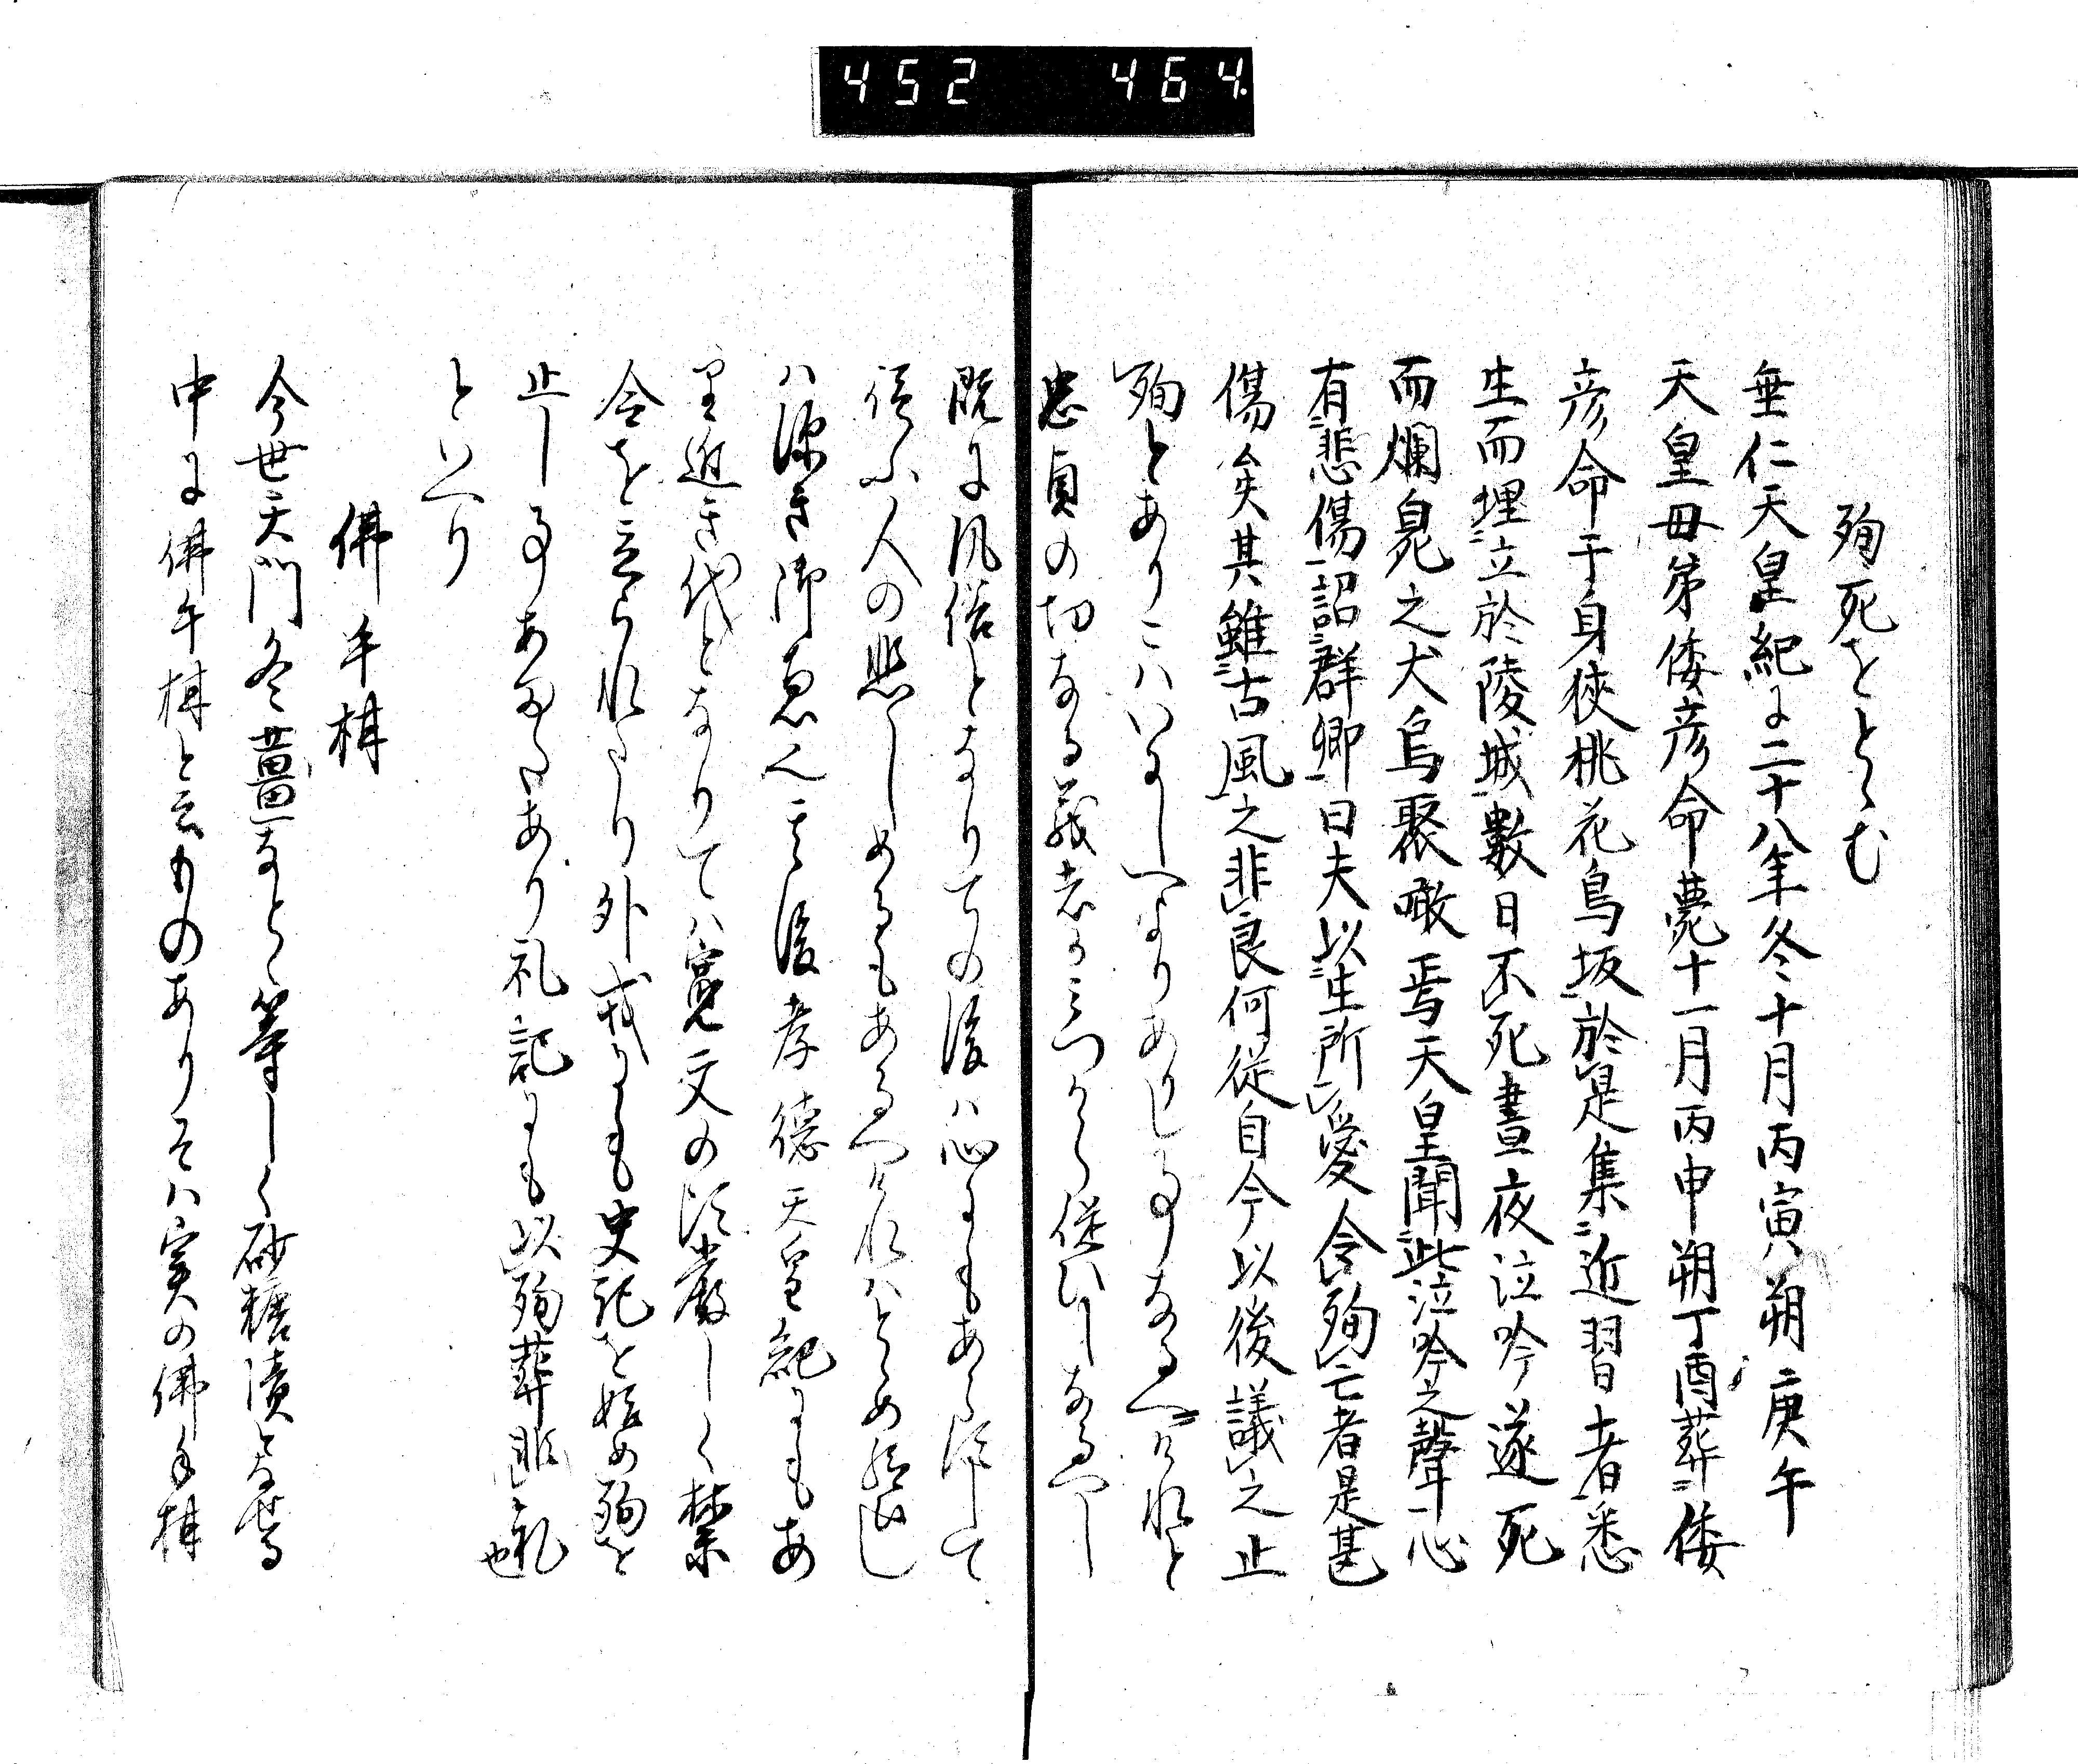 452 464.
殉死をとゝむ
垂仁天皇紀に二十八年冬十月丙寅朔庚午
天皇母弟倭彦命薨十一月丙申朔丁酉葬倭
彦命于身狹桃花鳥坂於是集近習者悉
生而埋立於陵域數日不死晝夜泣吟遂死
而爛臰之犬烏聚噉焉天皇聞此泣吟之聲心
有悲傷詔群卿曰夫以生所愛令殉亡者是甚
傷矣其雖古風之非良何從自今以後議之止
殉とありこハいにしへよりありし事なるへけれと
忠貞の切なる義者かみつから従ひしなるへし
既に風俗となりての後ハ心にもあらすして
従ふ人の悲しめるもあるへけれハとゝめ給ひし
ハ深き御恵也其後孝徳天皇紀にもあ
里近き代となりてハ寛文の頃厳しく禁
令を立られたり外戎にも史記を始め殉を
止し事あまたあり礼記にも以殉葬非礼也
といへり
佛手柑
今世天門冬薑なとゝ等しく砂糖漬となせる
中に佛手柑と云ものありそハ実の佛手柑